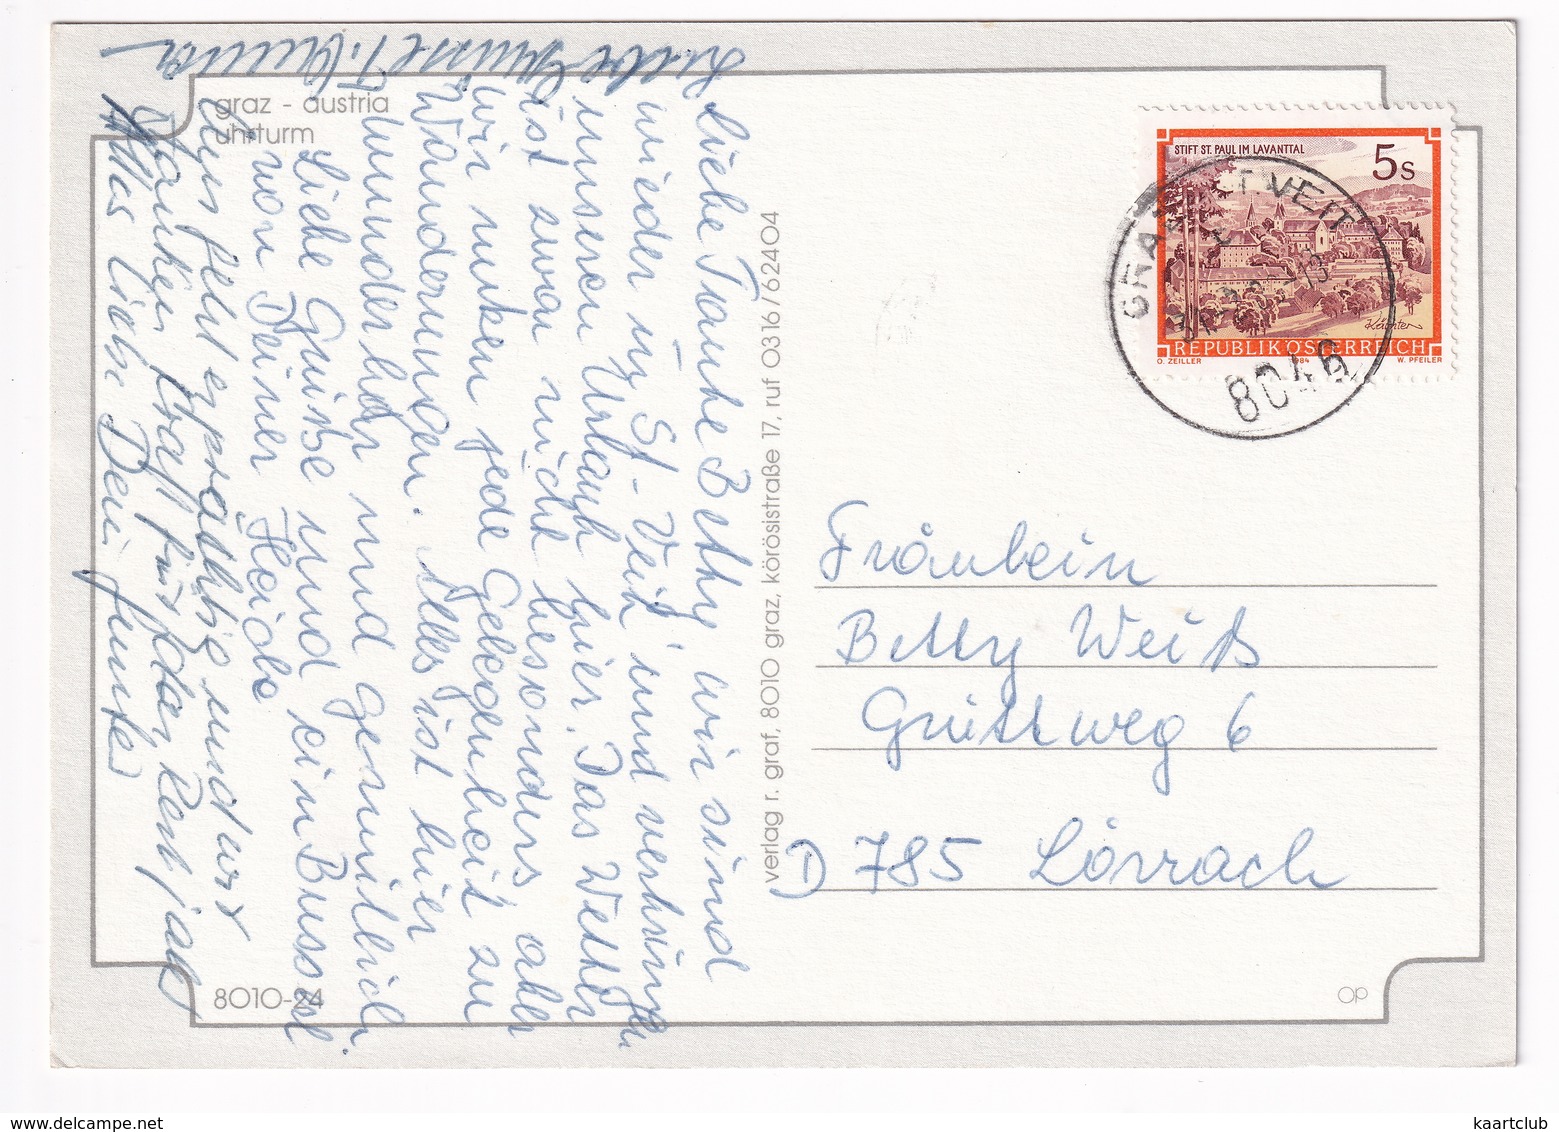 graz - austria
uhrturm
Liebe Tante Betty, wir sind
wieder in St. Veit und verbringen
unseren Urlaub hier. Das Wetter
ist zwar nicht besonders aber
wir nutzen jede Gelegenheit zu
Wanderungen. Alles ist hier
wunderbar und gemütlich.
Liebe Grüße und ein Bussal
von Deiner Heidi
Liebe Grüsse T.
Uns geht es prächtig und wir
tanken Kraft für
Alles Liebe Dein
verlag r. graf, 8010 graz, körösistraße 17, ruf 0316/62404
STIFT ST. PAUL IM LAVANTTAL
5 S
REPUBLIK ÖSTERREICH
O. ZEILLER 1984 W. PFEILER
GRAZ ST VEIT
8046
Fräulein
Betty Weiß
Grüttweg 6
D 785 Lörrach
8010-24
OP
kaartclub